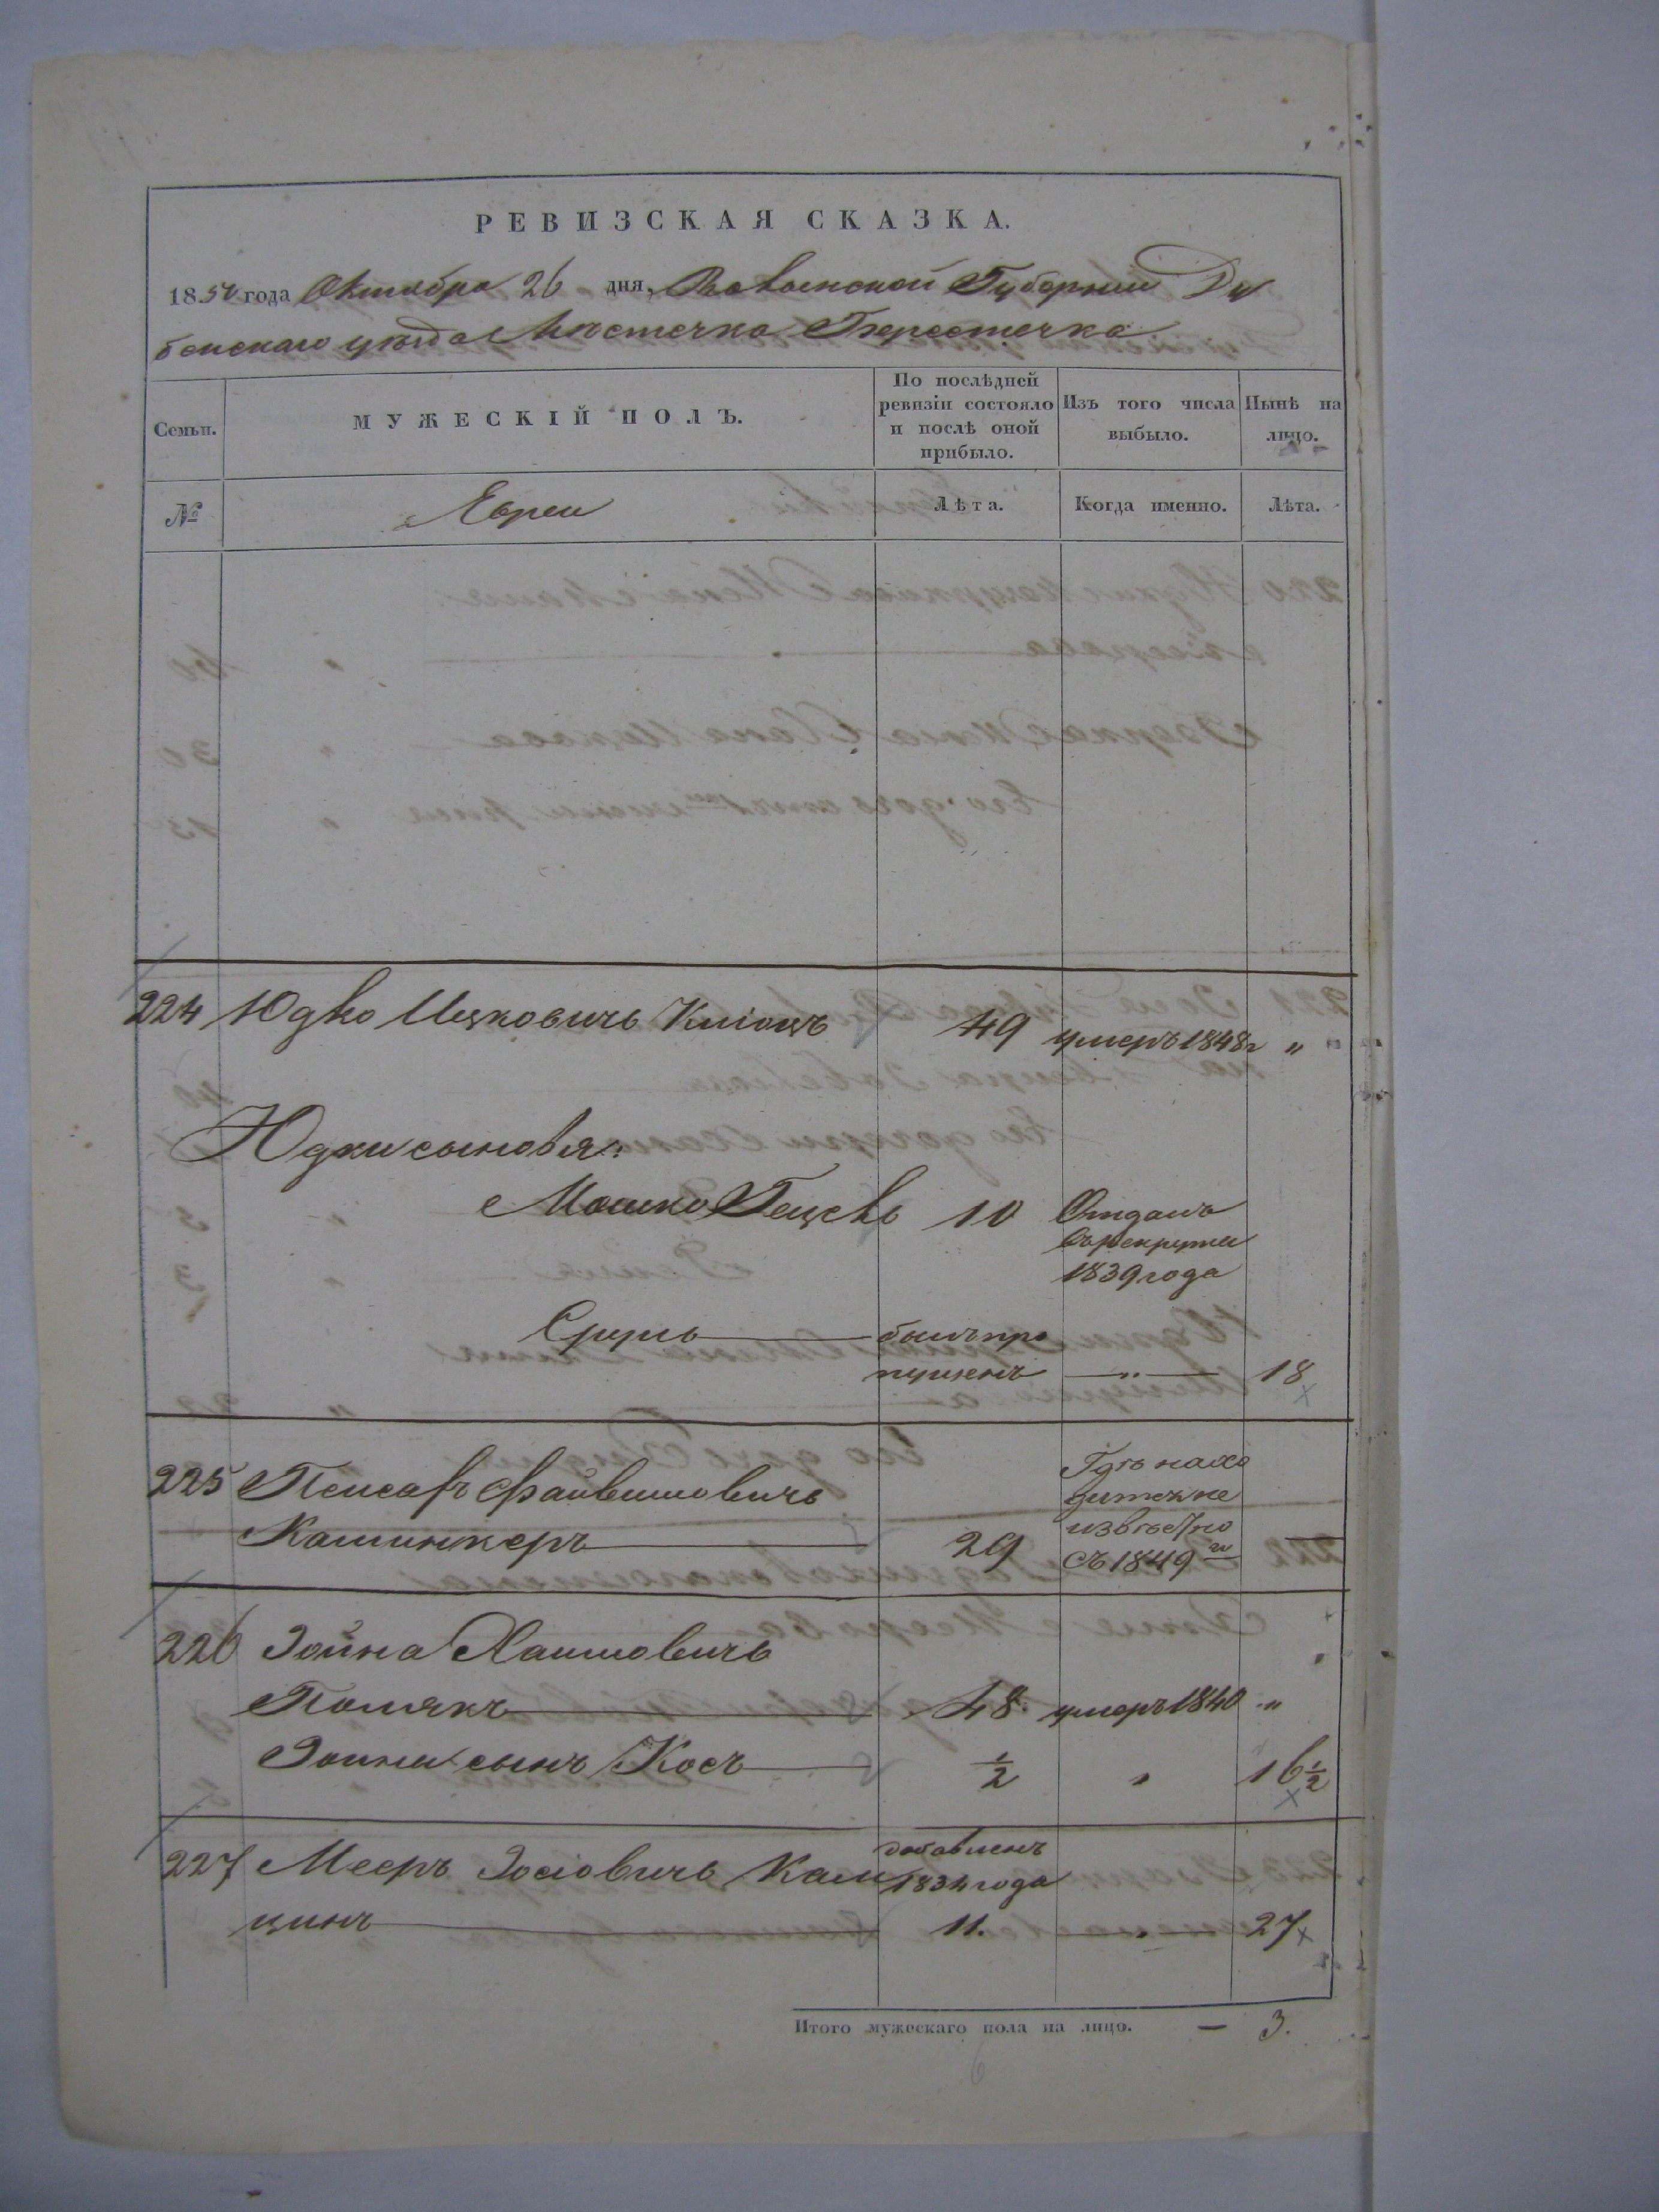 РЕВИЗСКАЯ СКАЗКА.
1850 года Октября 26 дня, Волынской Губернии Ду
бенскаго уѣзда Мѣстечка Берестечка
Семьи.
МУЖЕСКІЙ ПОЛЪ.
По послѣдней
ревизіи состояло
и послѣ оной
прибыло.
Изъ того числа
выбыло.
Нынѣ на
лицо.
№
Евреи
Лѣта.
Когда именно.
Лѣта.
224 Юдко Ицковичъ 49 умеръ 1848г "
Юдки сыновья:
Мошко Гецель 10 Отданъ
въ рекруты
1839 года
Сруль былъ про
пущенъ " 18
225 Пейсахъ Файвишовичъ
Калинкеръ 29
Гдѣ нахо
дится не
извѣстно
съ 1849 го
226 Іойна Хаимовичъ
Полякъ 48 умеръ 1840 "
Іойны сынъ Косъ ½ " 16½
227 Мееръ Іосіовичъ Кам
цинъ
добавленъ
1834 года
11. " 27
Итого мужескаго пола на лицо. — 3.
6